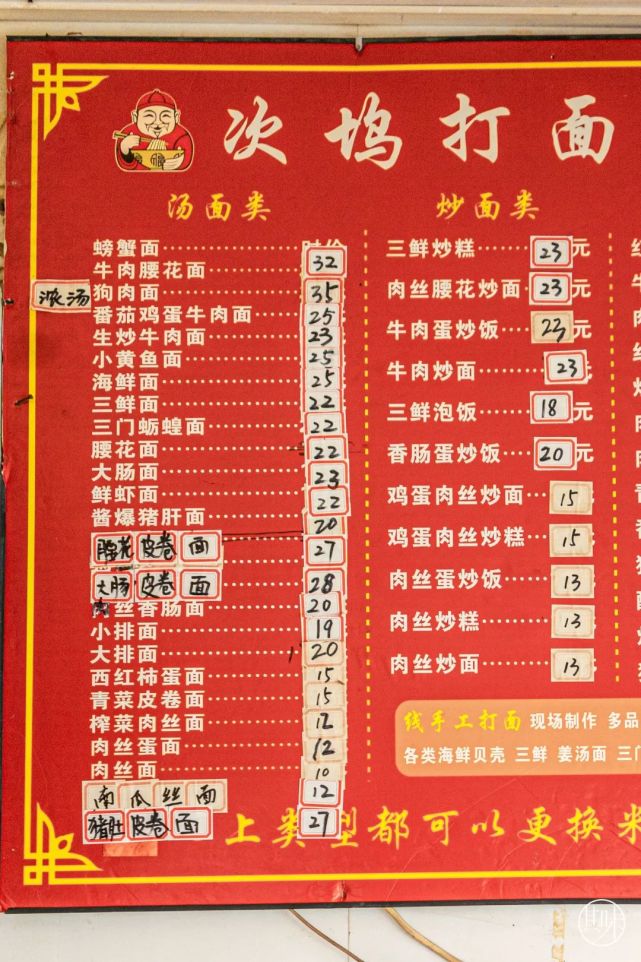 次坞打面
汤面类
螃蟹面
牛肉腰花面 32
浓汤 狗肉面 35
番茄鸡蛋牛肉面 25
生炒牛肉面 23
小黄鱼面 25
海鲜面 25
三鲜面 22
三门蛎蝗面 22
腰花面 22
大肠面 23
鲜虾面 22
酱爆猪肝面 20
腰花皮卷面 27
大肠皮卷面 28
肉丝香肠面 20
小排面 19
大排面 20
西红柿蛋面 15
青菜皮卷面 15
榨菜肉丝面 12
肉丝蛋面 12
肉丝面 10
南瓜丝面 12
猪肚皮卷面 27
炒面类
三鲜炒糕 23元
肉丝腰花炒面 23元
牛肉蛋炒饭 23元
牛肉炒面 23
三鲜泡饭 18元
香肠蛋炒饭 20元
鸡蛋肉丝炒面 15
鸡蛋肉丝炒糕 15
肉丝蛋炒饭 13
肉丝炒糕 13
肉丝炒面 13
线手工打面 现场制作 多品
各类海鲜贝壳 三鲜 姜汤面 三门
上类型都可以更换米